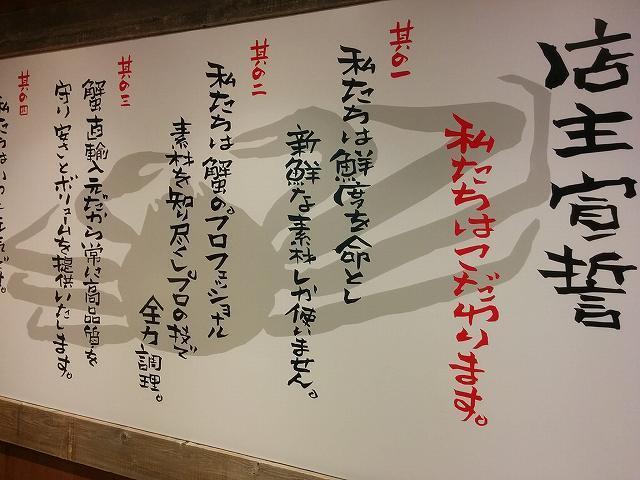 店主宣誓
私たちはこだわります。
其の一
私たちは鮮度を命とし
新鮮な素材しか使いません。
其の二
私たちは蟹のプロフェッショナル
素材を知り尽くしプロの技で
全力調理。
其の三
蟹直輸入元だから常に高品質を
守り安さとボリュームを提供いたします。
其の四